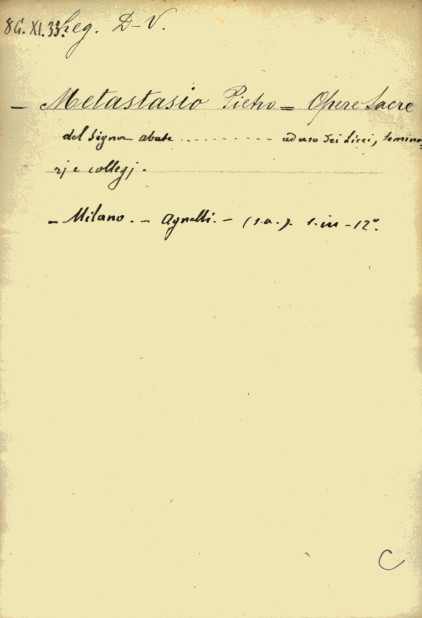 8G.XI.33. Leg. D-V.
— Metastasio Pietro = Opere Sacre
del Signor abate ............ ad uso dei Licei, semina-
rj e collegj.
— Milano. — Agnelli. — (s.a.). 1. in - 12°.
C